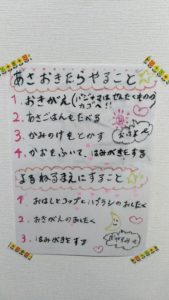 あさおきたらやること
1. おきがえ(パジャマはせんたくものの
カゴへ!!)
2. あさごはんをたべる
3. かみのけをとかす
4. かおをふいて、はみがきをする
よるねるまえにすること
1. おはしとコップとハブラシのしたく
2. おきがえのしたく
3. はみがきをする
おやすみ